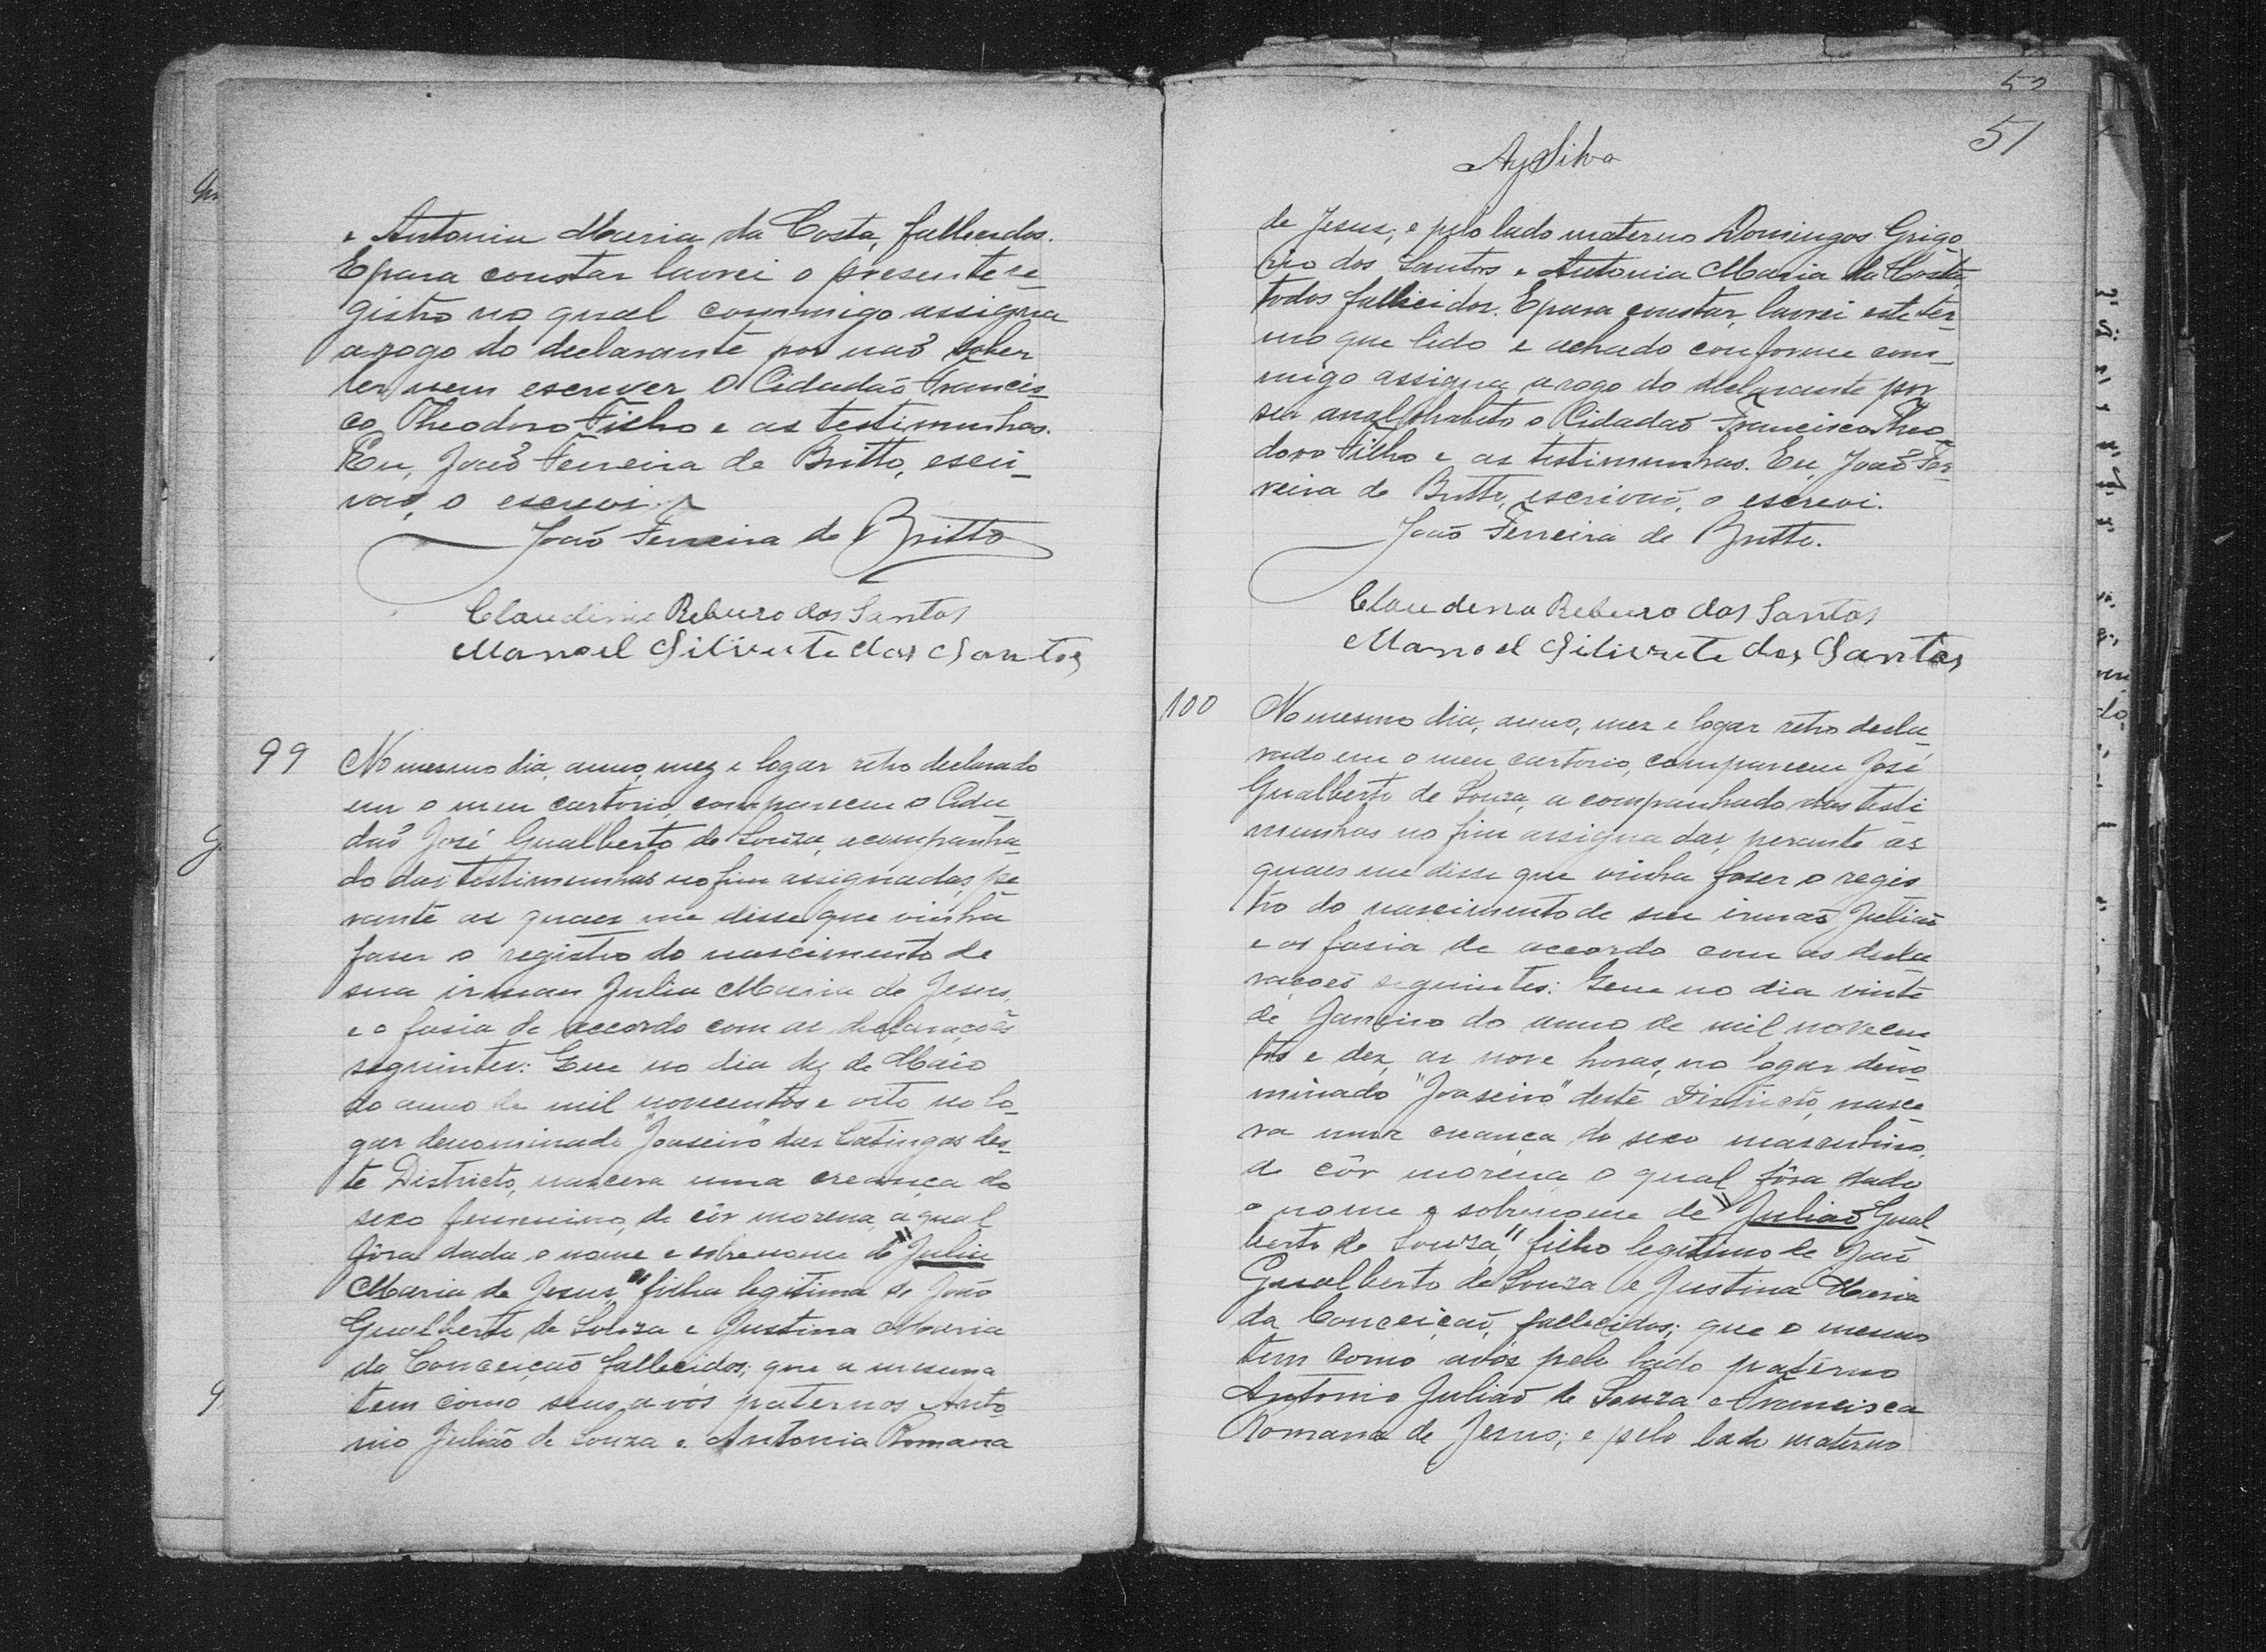 e Antonia Maria da Costa, fallecidos.
E para constar lavrei o presente re-
gistro no qual commigo assigna
a rogo do declarante por não saber
ler nem escrever o Cidadão Francis-
co Theodoro Filho e as testimunhas.
Eu, João Ferreira de Britto, escri-
vão, o escrevi.
João Ferreira de Britto
Claudino Reburo dos Santos
Manoel Silivrete dos Santos
99 No mesmo dia, anno, mez e logar retro declarado
em o meu cartorio, compareceu o Cida-
dão José Gualberto de Souza, acompanha-
do das testimunhas no fim assignadas, pe-
rante as quaes me disse que vinha
faser o registro do nascimento de
sua irman Julia Maria de Jesus,
e o fasia de accordo com as declarações
seguintes: Que no dia dez de Maio
do anno de mil novecentos e oito no lo-
gar denominado "Joaseiro" das Catingas des-
te Districto, nascera uma creança do
sexo femenino, de côr morena, a qual
fôra dada o nome e sobrenome de "Julia
Maria de Jesus," filha legitima de João
Gualberto de Souza e Justina Maria
da Conceição fallecidos; que a mesma
tem como seus avós paternos Anto-
nio Julião de Souza e Antonia Romana
52
51
de Jesus; e pelo lado materno Domingos Grigo-
rio dos Santos e Antonia Maria da Costa,
todos fallicidos. E para constar, lavrei este ter-
mo que lido e achado conforme com-
migo assigna a rogo do declarante por
ser analphabeto o Cidadão Francisco Theo-
doro Filho e as testimunhas. Eu, João Fer-
reira de Britto, escrivão, o escrevi.
João Ferreira de Britto.
Claudino Reburo dos Santos
Manoel Silivrete dos Santos
100 No mesmo dia, anno, mez e logar retro decla-
rado em o meu cartorio, compareceu José
Gualberto de Souza, acompanhado das testi-
munhas no fim assignadas, perante as
quaes me disse que vinha faser o regis-
tro do nascimento de seu irmão Julião
e os fasia de accordo com as decla-
rações seguintes: Que no dia vinte
de Janeiro do anno de mil novecen-
tos e dez, as nove horas, no logar deno-
minado "Joaseiro" deste Districto, nasce-
ra uma creança do sexo masculino,
de côr morena o qual fôra dado
o nome e sobrenome de "Julião Gual-
berto de Souza," filho legitimo de João
Gualberto de Souza e Justina Maria
da Conceição, fallecidos; que o mesmo
tem como avós pelo lado paterno
Antonio Julião de Souza e Francisca
Romana de Jesus; e pelo lado materno